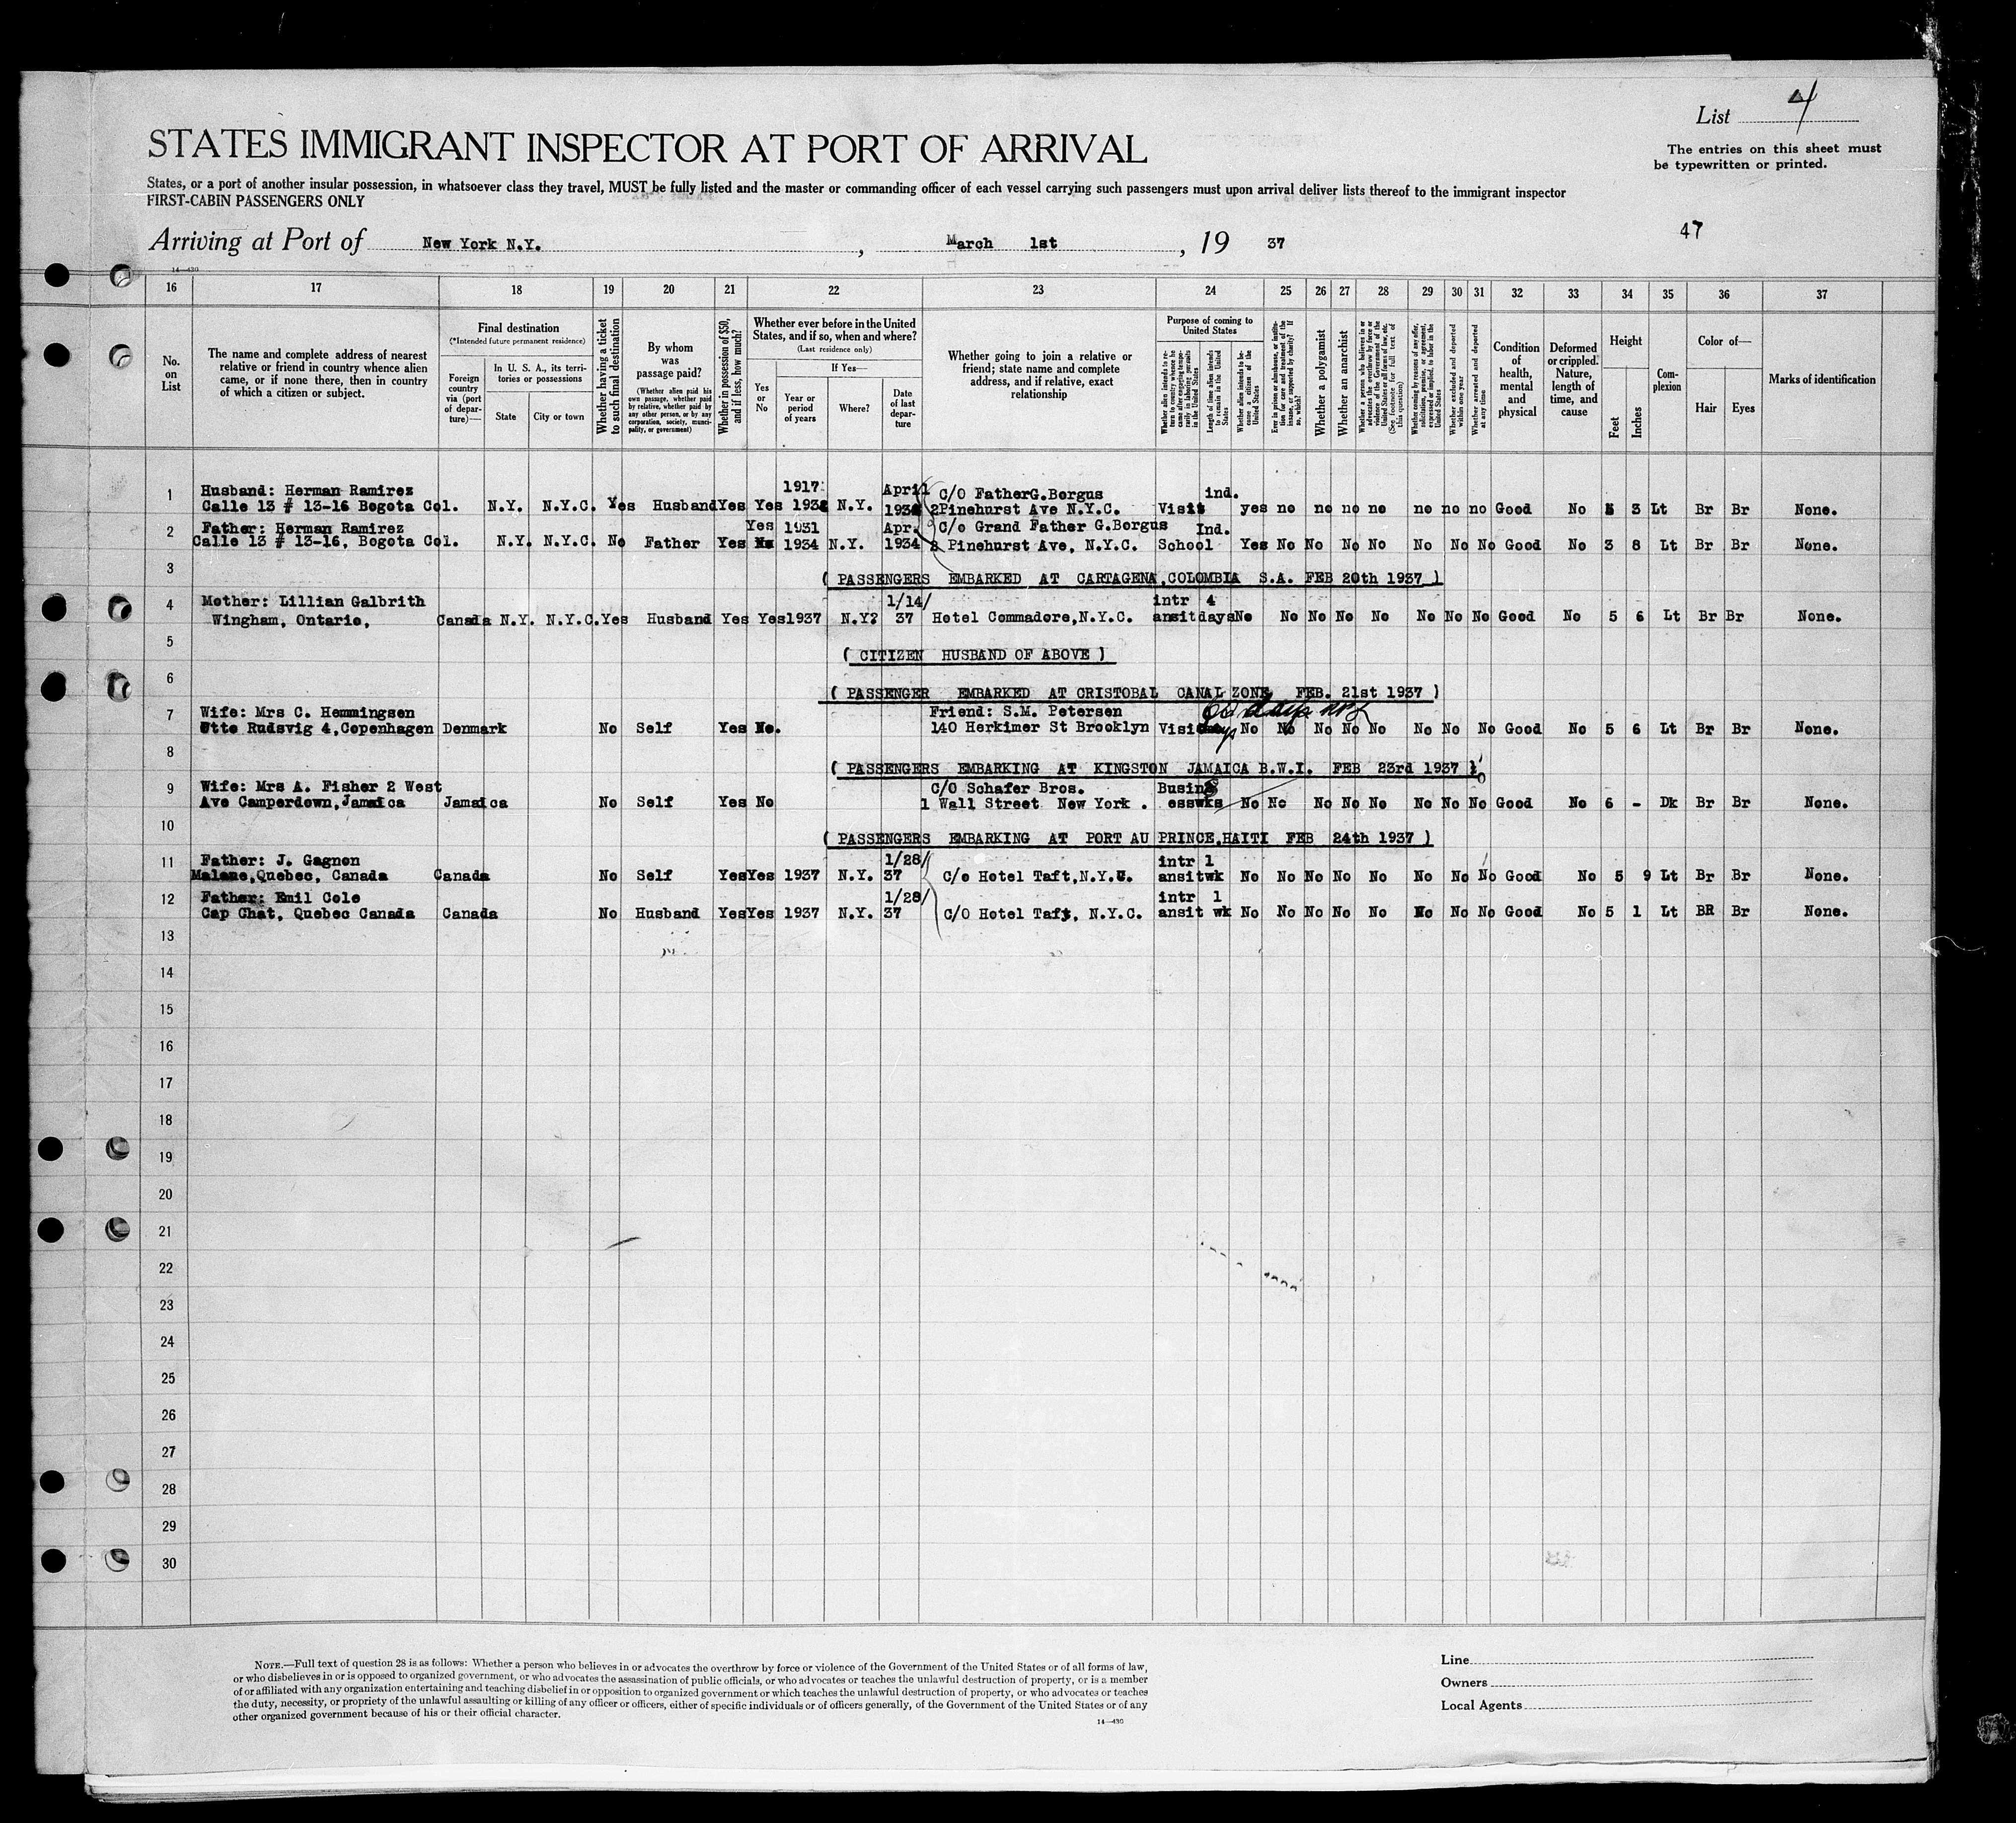 List 4
STATES IMMIGRANT INSPECTOR AT PORT OF ARRIVAL
The entries on this sheet must
be typewritten or printed.
States, or a port of another insular possession, in whatsoever class they travel, MUST be fully listed and the master or commanding officer of each vessel carrying such passengers must upon arrival deliver lists thereof to the immigrant inspector
FIRST-CABIN PASSENGERS ONLY
Arriving at Port of New York N.Y. , March 1st , 19 37
47
14—430
16 17 18 19 20 21 22 23 24 25 26 27 28 29 30 31 32 33 34 35 36 37
No. on List
The name and complete address of nearest relative or friend in country whence alien came, or if none there, then in country of which a citizen or subject.
Final destination
(*Intended future permanent residence)
Foreign country via (port of departure)—
In U. S. A., its territories or possessions
State
City or town
Whether having a ticket to such final destination
By whom was passage paid?
(Whether alien paid his own passage, whether paid by relative, whether paid by any other person, or by any corporation, society, municipality, or government)
Whether in possession of $50, and if less, how much?
Whether ever before in the United States, and if so, when and where?
(Last residence only)
Yes or No
If Yes—
Year or period of years
Where?
Date of last departure
Whether going to join a relative or friend; state name and complete address, and if relative, exact relationship
Purpose of coming to United States
Whether alien intends to return to country whence he came after engaging temporarily in laboring pursuits in the United States
Length of time alien intends to remain in the United States
Whether alien intends to become a citizen of the United States
Ever in prison or almshouse, or institution for care and treatment of the insane, or supported by charity? If so, which?
Whether a polygamist
Whether an anarchist
Whether a person who believes in or advocates the overthrow by force or violence of the Government of the United States or all forms of law, etc. (See footnote for full text of this question)
Whether coming by reason of any offer, solicitation, promise, or agreement, expressed or implied, to labor in the United States
Whether excluded and deported within one year
Whether arrested and deported at any time
Condition of health, mental and physical
Deformed or crippled. Nature, length of time, and cause
Height
Feet
Inches
Complexion
Color of—
Hair
Eyes
Marks of identification
1 Husband: Herman Ramirez 1917 April C/O Father G. Borgus ind.
Calle 13 # 13-16 Bogota Col. N.Y. N.Y.C. Yes Husband Yes Yes N.Y. 2 Pinehurst Ave N.Y.C. Visit yes no no no no no no no Good No 3 Lt Br Br None.
2 Father: Herman Ramirez Yes 1931 Apr. C/o Grand Father G. Borgus Ind.
Calle 13 # 13-16, Bogota Col. N.Y. N.Y.C. No Father Yes No 1934 N.Y. 1934 2 Pinehurst Ave, N.Y.C. School Yes No No No No No No No Good No 3 8 Lt Br Br None.
3 ( PASSENGERS EMBARKED AT CARTAGENA, COLOMBIA S.A. FEB 20th 1937 )
4 Mother: Lillian Galbrith 1/14/ intr 4
Wingham, Ontario, Canada N.Y. N.Y.C. Yes Husband Yes Yes 1937 N.Y? 37 Hotel Commadore, N.Y.C. ansit days No No No No No No No No Good No 5 6 Lt Br Br None.
5 ( CITIZEN HUSBAND OF ABOVE )
6 ( PASSENGER EMBARKED AT CRISTOBAL CANAL ZONE FEB. 21st 1937 )
7 Wife: Mrs C. Hemmingsen Friend: S.M. Petersen 60 days
Otto Rudsvig 4, Copenhagen Denmark No Self Yes No. 140 Herkimer St Brooklyn Visit No No No No No No No No Good No 5 6 Lt Br Br None.
8 ( PASSENGERS EMBARKING AT KINGSTON JAMAICA B.W.I. FEB 23rd 1937 )
9 Wife: Mrs A. Fisher 2 West C/O Schafer Bros. Busin
Ave Camperdown, Jamaica Jamaica No Self Yes No 1 Wall Street New York . ess wks No No No No No No No No Good No 6 - Dk Br Br None.
10 ( PASSENGERS EMBARKING AT PORT AU PRINCE, HAITI FEB 24th 1937 )
11 Father: J. Gagnon 1/28/ intr 1
Malane, Quebec, Canada Canada No Self Yes Yes 1937 N.Y. 37 C/o Hotel Taft, N.Y.C. ansit wk No No No No No No No No Good No 5 9 Lt Br Br None.
12 Father: Emil Cole 1/28/ intr 1
Cap Chat, Quebec Canada Canada No Husband Yes Yes 1937 N.Y. 37 C/O Hotel Taft, N.Y.C. ansit wk No No No No No No No No Good No 5 1 Lt BR Br None.
13
14
15
16
17
18
19
20
21
22
23
24
25
26
27
28
29
30
NOTE.—Full text of question 28 is as follows: Whether a person who believes in or advocates the overthrow by force or violence of the Government of the United States or of all forms of law,
or who disbelieves in or is opposed to organized government, or who advocates the assassination of public officials, or who advocates or teaches the unlawful destruction of property, or is a member
of or affiliated with any organization entertaining and teaching disbelief in or opposition to organized government or which teaches the unlawful destruction of property, or who advocates or teaches
the duty, necessity, or propriety of the unlawful assaulting or killing of any officer or officers, either of specific individuals or of officers generally, of the Government of the United States or of any
other organized government because of his or their official character.
14—430
Line
Owners
Local Agents